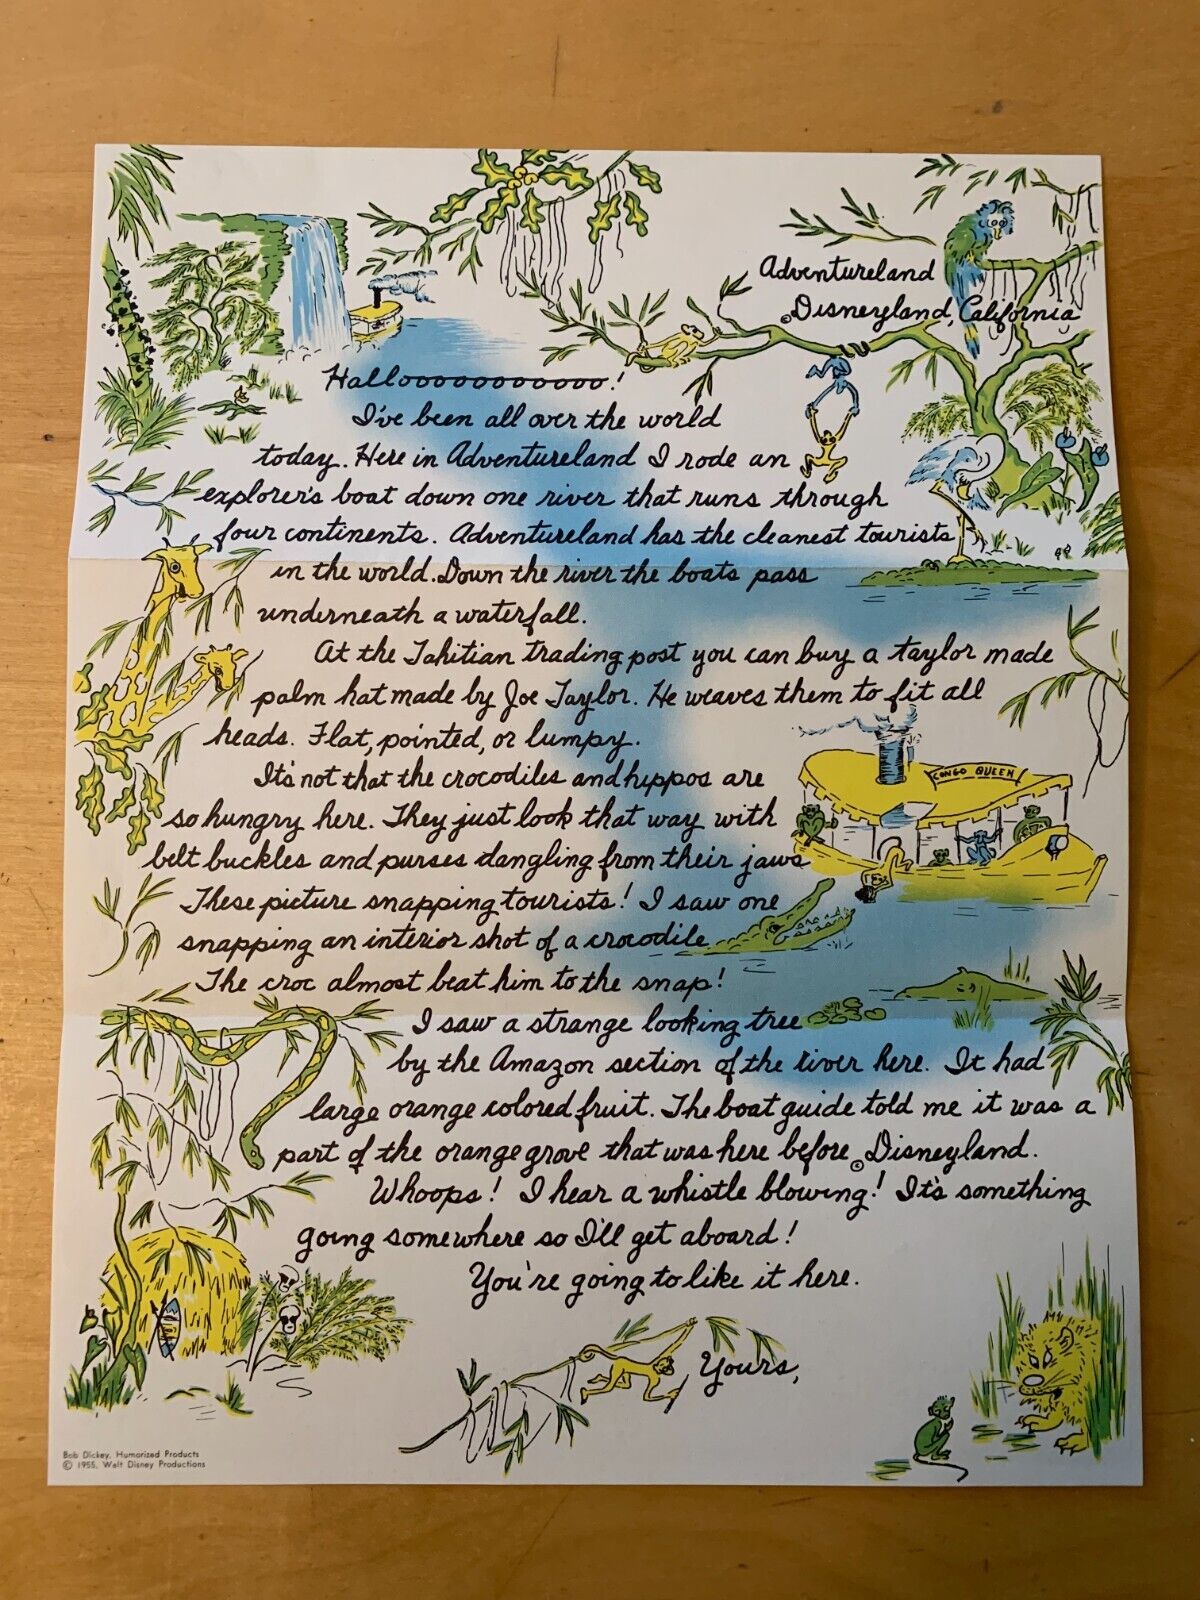 Adventureland
©Disneyland, California
Halloooooooooooo!
I've been all over the world
today. Here in Adventureland I rode an
explorer's boat down one river that runs through
four continents. Adventureland has the cleanest tourists
in the world. Down the river the boats pass
underneath a waterfall.
At the Tahitian trading post you can buy a taylor made
palm hat made by Joe Taylor. He weaves them to fit all
heads. Flat, pointed, or lumpy.
It's not that the crocodiles and hippos are
CONGO QUEEN
so hungry here. They just look that way with
belt buckles and purses dangling from their jaws
These picture snapping tourists! I saw one
snapping an interior shot of a crocodile
The croc almost beat him to the snap!
I saw a strange looking tree
by the Amazon section of the river here. It had
large orange colored fruit. The boat guide told me it was a
part of the orange grove that was here before ©Disneyland.
Whoops! I hear a whistle blowing! It's something
going somewhere so I'll get aboard!
You're going to like it here.
Yours,
Bob Dickey, Humorized Products
© 1955, Walt Disney Productions